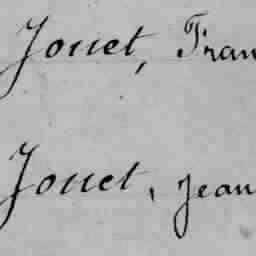 Jouet, Fran
Jouet, Jean